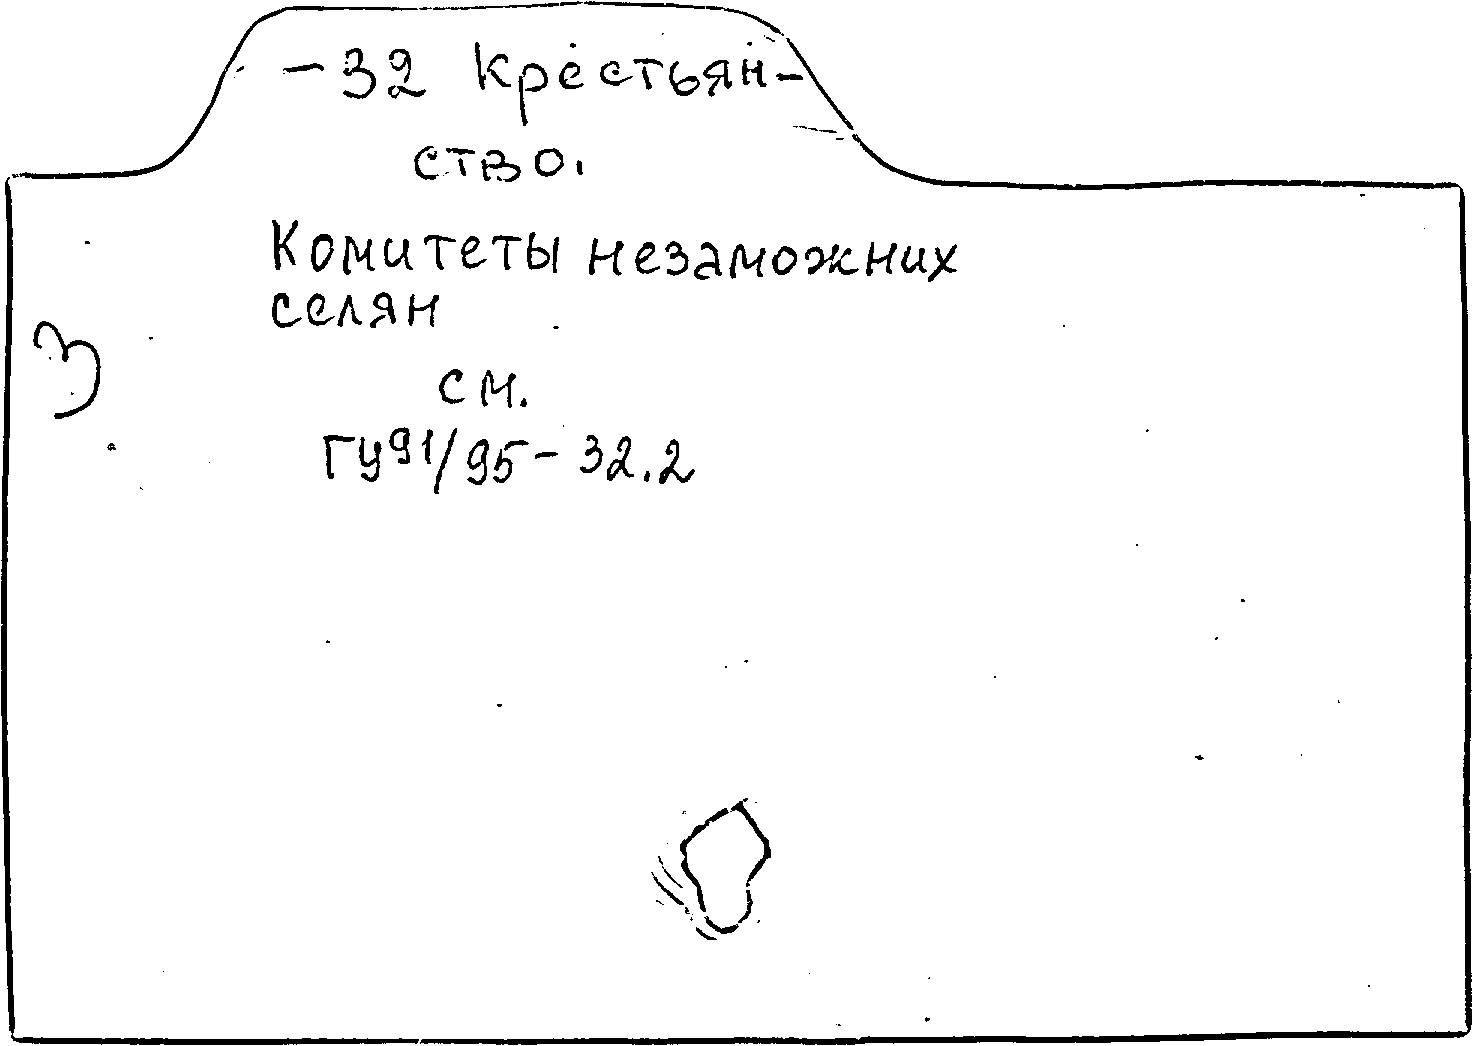 -32 Крестьян-
ство.
Комитеты незаможних
селян
3
см.
ГУ91/95-32.2